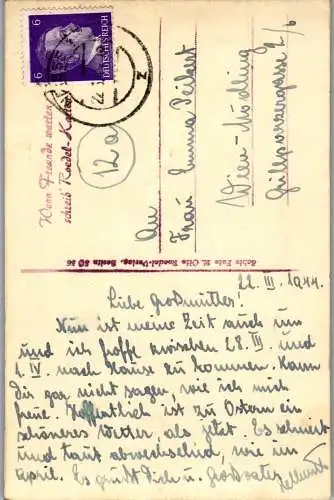 6 DEUTSCHES REICH 6
22.
Wenn Freunde warten
schreib' Roedel-Karten
12a
An
Frau Emma Seifert
Wien-Mödling
Grillparzergasse 2/6
Echte Foto W. Otto Roedel-Verlag, Berlin SO 36
22. III. 1944.
Liebe Großmutter!
Nun ist meine Zeit auch um
und ich hoffe zwischen 28. III. und
1. IV. nach Hause zu kommen. Kann
Dir gar nicht sagen, wie ich mich
freue. Hoffentlich ist zu Ostern ein
schöneres Wetter als jetzt. Es schneit
und taut abwechselnd, wie im
April. Es grüßt Dich u. Großvater
Hellmuth